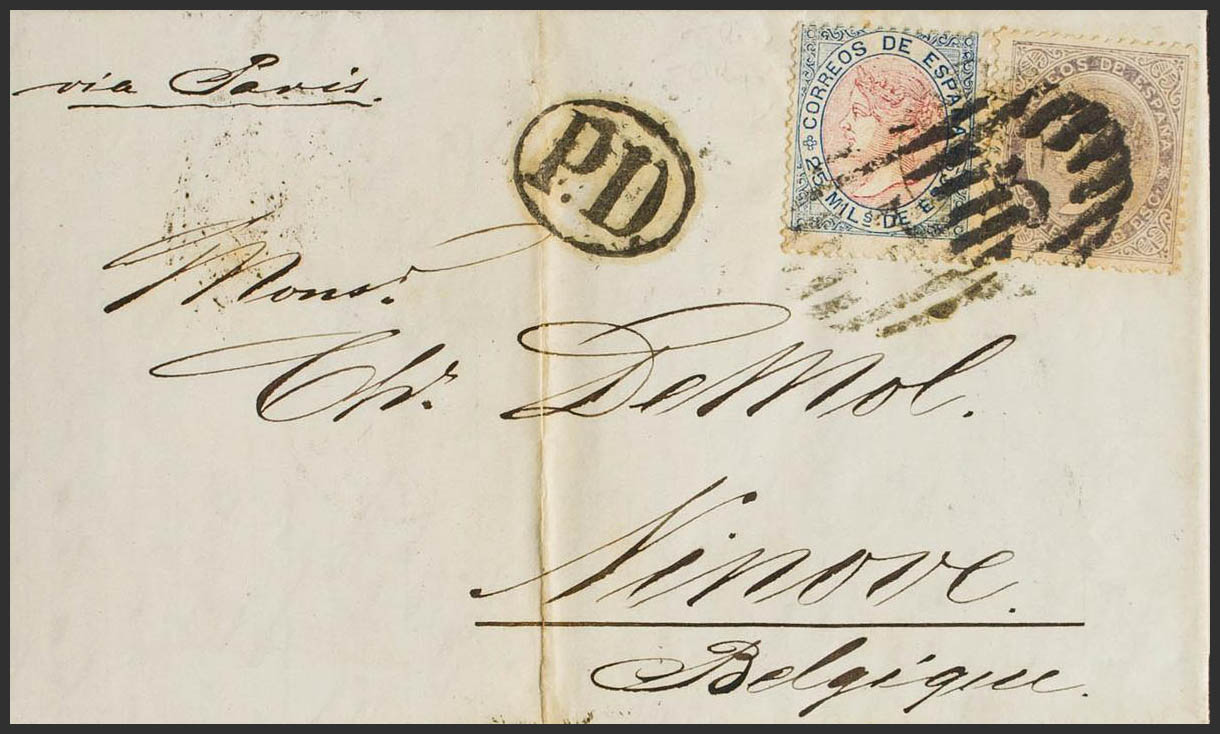 via Paris.
P.D
CORREOS DE ESPAÑA
25 MILS DE ES
EOS DE ESPAÑA
Monsr
Chs. DeMol.
Ninove.
Belgique.